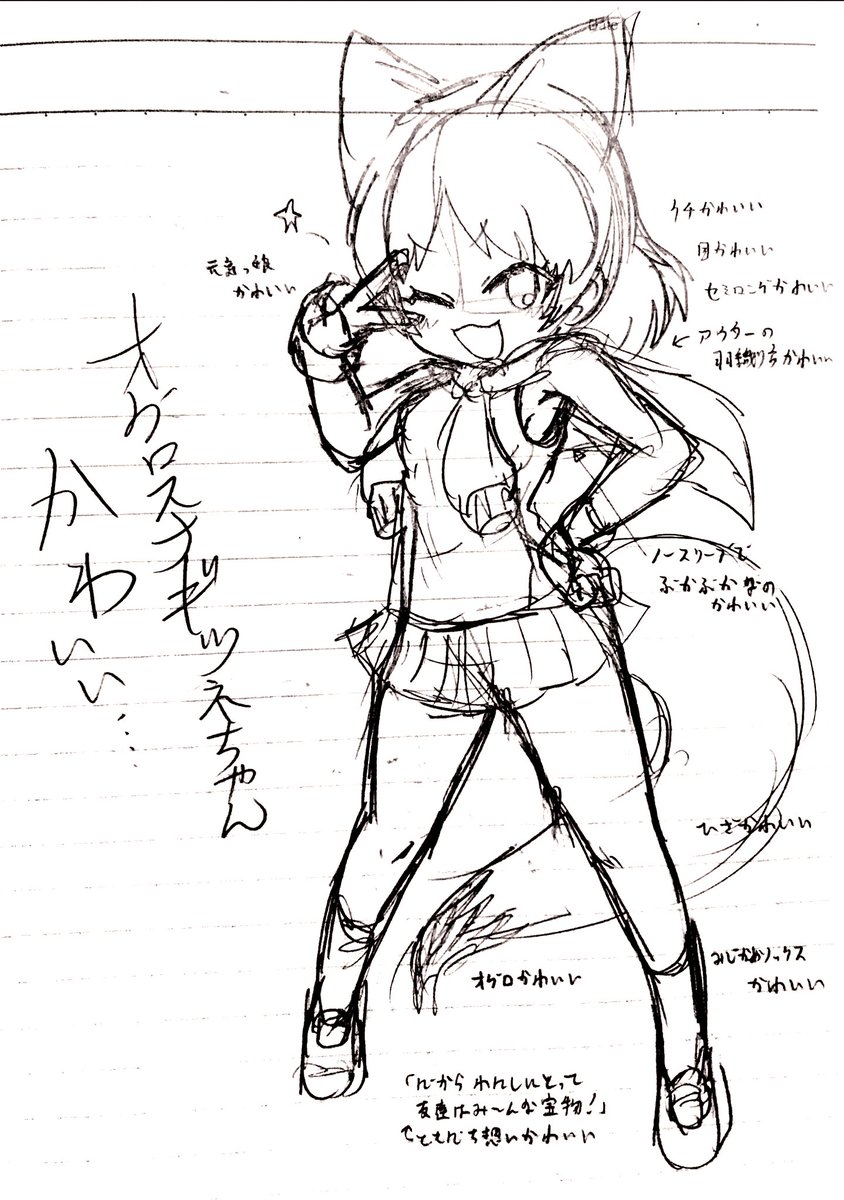 オグロスナギツネちゃん
かわいい…
元気っ娘
かわいい
クチかわいい
目かわいい
セミロングかわいい
← アウターの
羽織り方かわいい
ノースリーブで
ぶかぶかなの
かわいい
ひざかわいい
みじかめソックス
かわいい
オグロかわいい
「だから わたしにとって
友達はみ〜んな宝物!」
↑ともだち想いかわいい